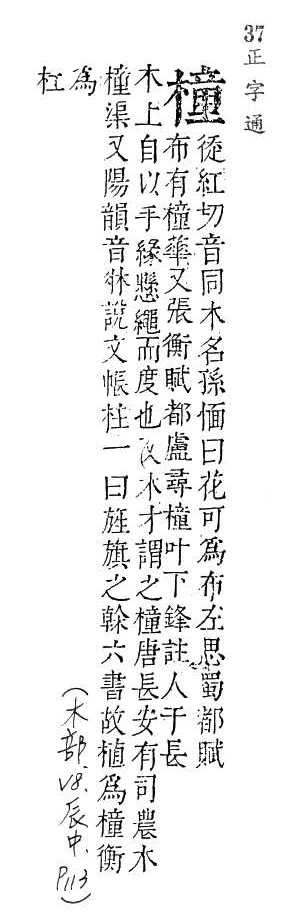 37 正字通
橦
從紅切音同木名孫愐曰花可爲布左思蜀都賦
布有橦華又張衡賦都盧尋橦叶下鋒註人于長
木上自以手緣懸繩而度也又木才謂之橦唐長安有司農水
橦渠又陽韻音牀說文帳柱一曰旌旗之榦六書故植爲橦衡
爲
杠
(木部、v8.辰中、P113)